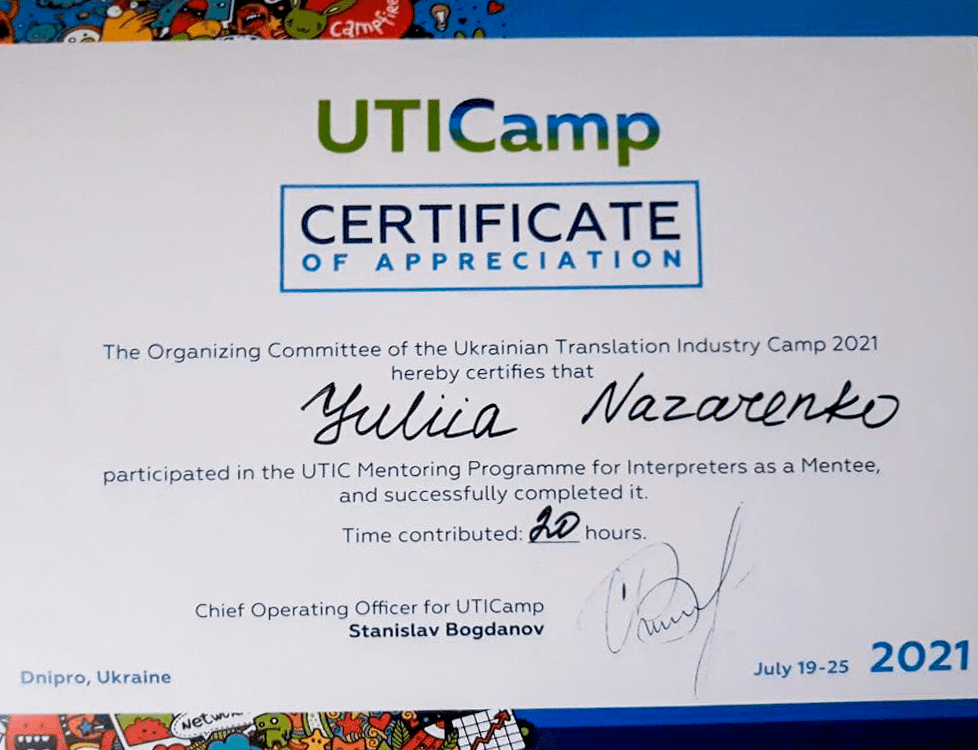 Campfire
UTICamp
CERTIFICATE
OF APPRECIATION
The Organizing Committee of the Ukrainian Translation Industry Camp 2021
hereby certifies that
Yuliia Nazarenko
participated in the UTIC Mentoring Programme for Interpreters as a Mentee,
and successfully completed it.
Time contributed: 20 hours.
Chief Operating Officer for UTICamp
Stanislav Bogdanov
Dnipro, Ukraine
July 19-25 2021